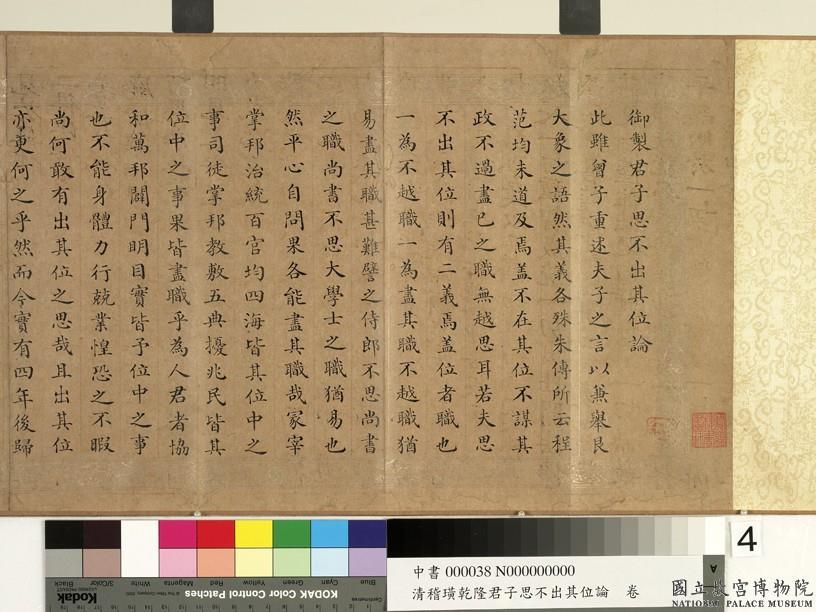 御製君子思不出其位論
此雖曾子重述夫子之言以兼舉艮
大象之語然其義各殊朱傳所云程
范均未道及焉蓋不在其位不謀其
政不過盡己之職無越思耳若夫思
不出其位則有二義焉蓋位者職也
一為不越職一為盡其職不越職猶
易盡其職甚難譬之侍郎不思尚書
之職尚書不思大學士之職猶易也
然平心自問果各能盡其職哉冢宰
掌邦治統百官均四海皆其位中之
事司徒掌邦教敷五典擾兆民皆其
位中之事果皆盡職乎為人君者協
和萬邦闢門明目實皆予位中之事
也不能身體力行兢業惶恐之不暇
尚何敢有出其位之思哉且出其位
亦更何之乎然而今實有四年後歸
4
Blue
Cyan
Green
Yellow
Red
Magenta
White
3/Color
Black
Kodak Color Control Patches
Kodak
A
中書 000038 N000000000
清稽璜乾隆君子思不出其位論 卷
國立故宮博物院
NATIONAL PALACE MUSEUM